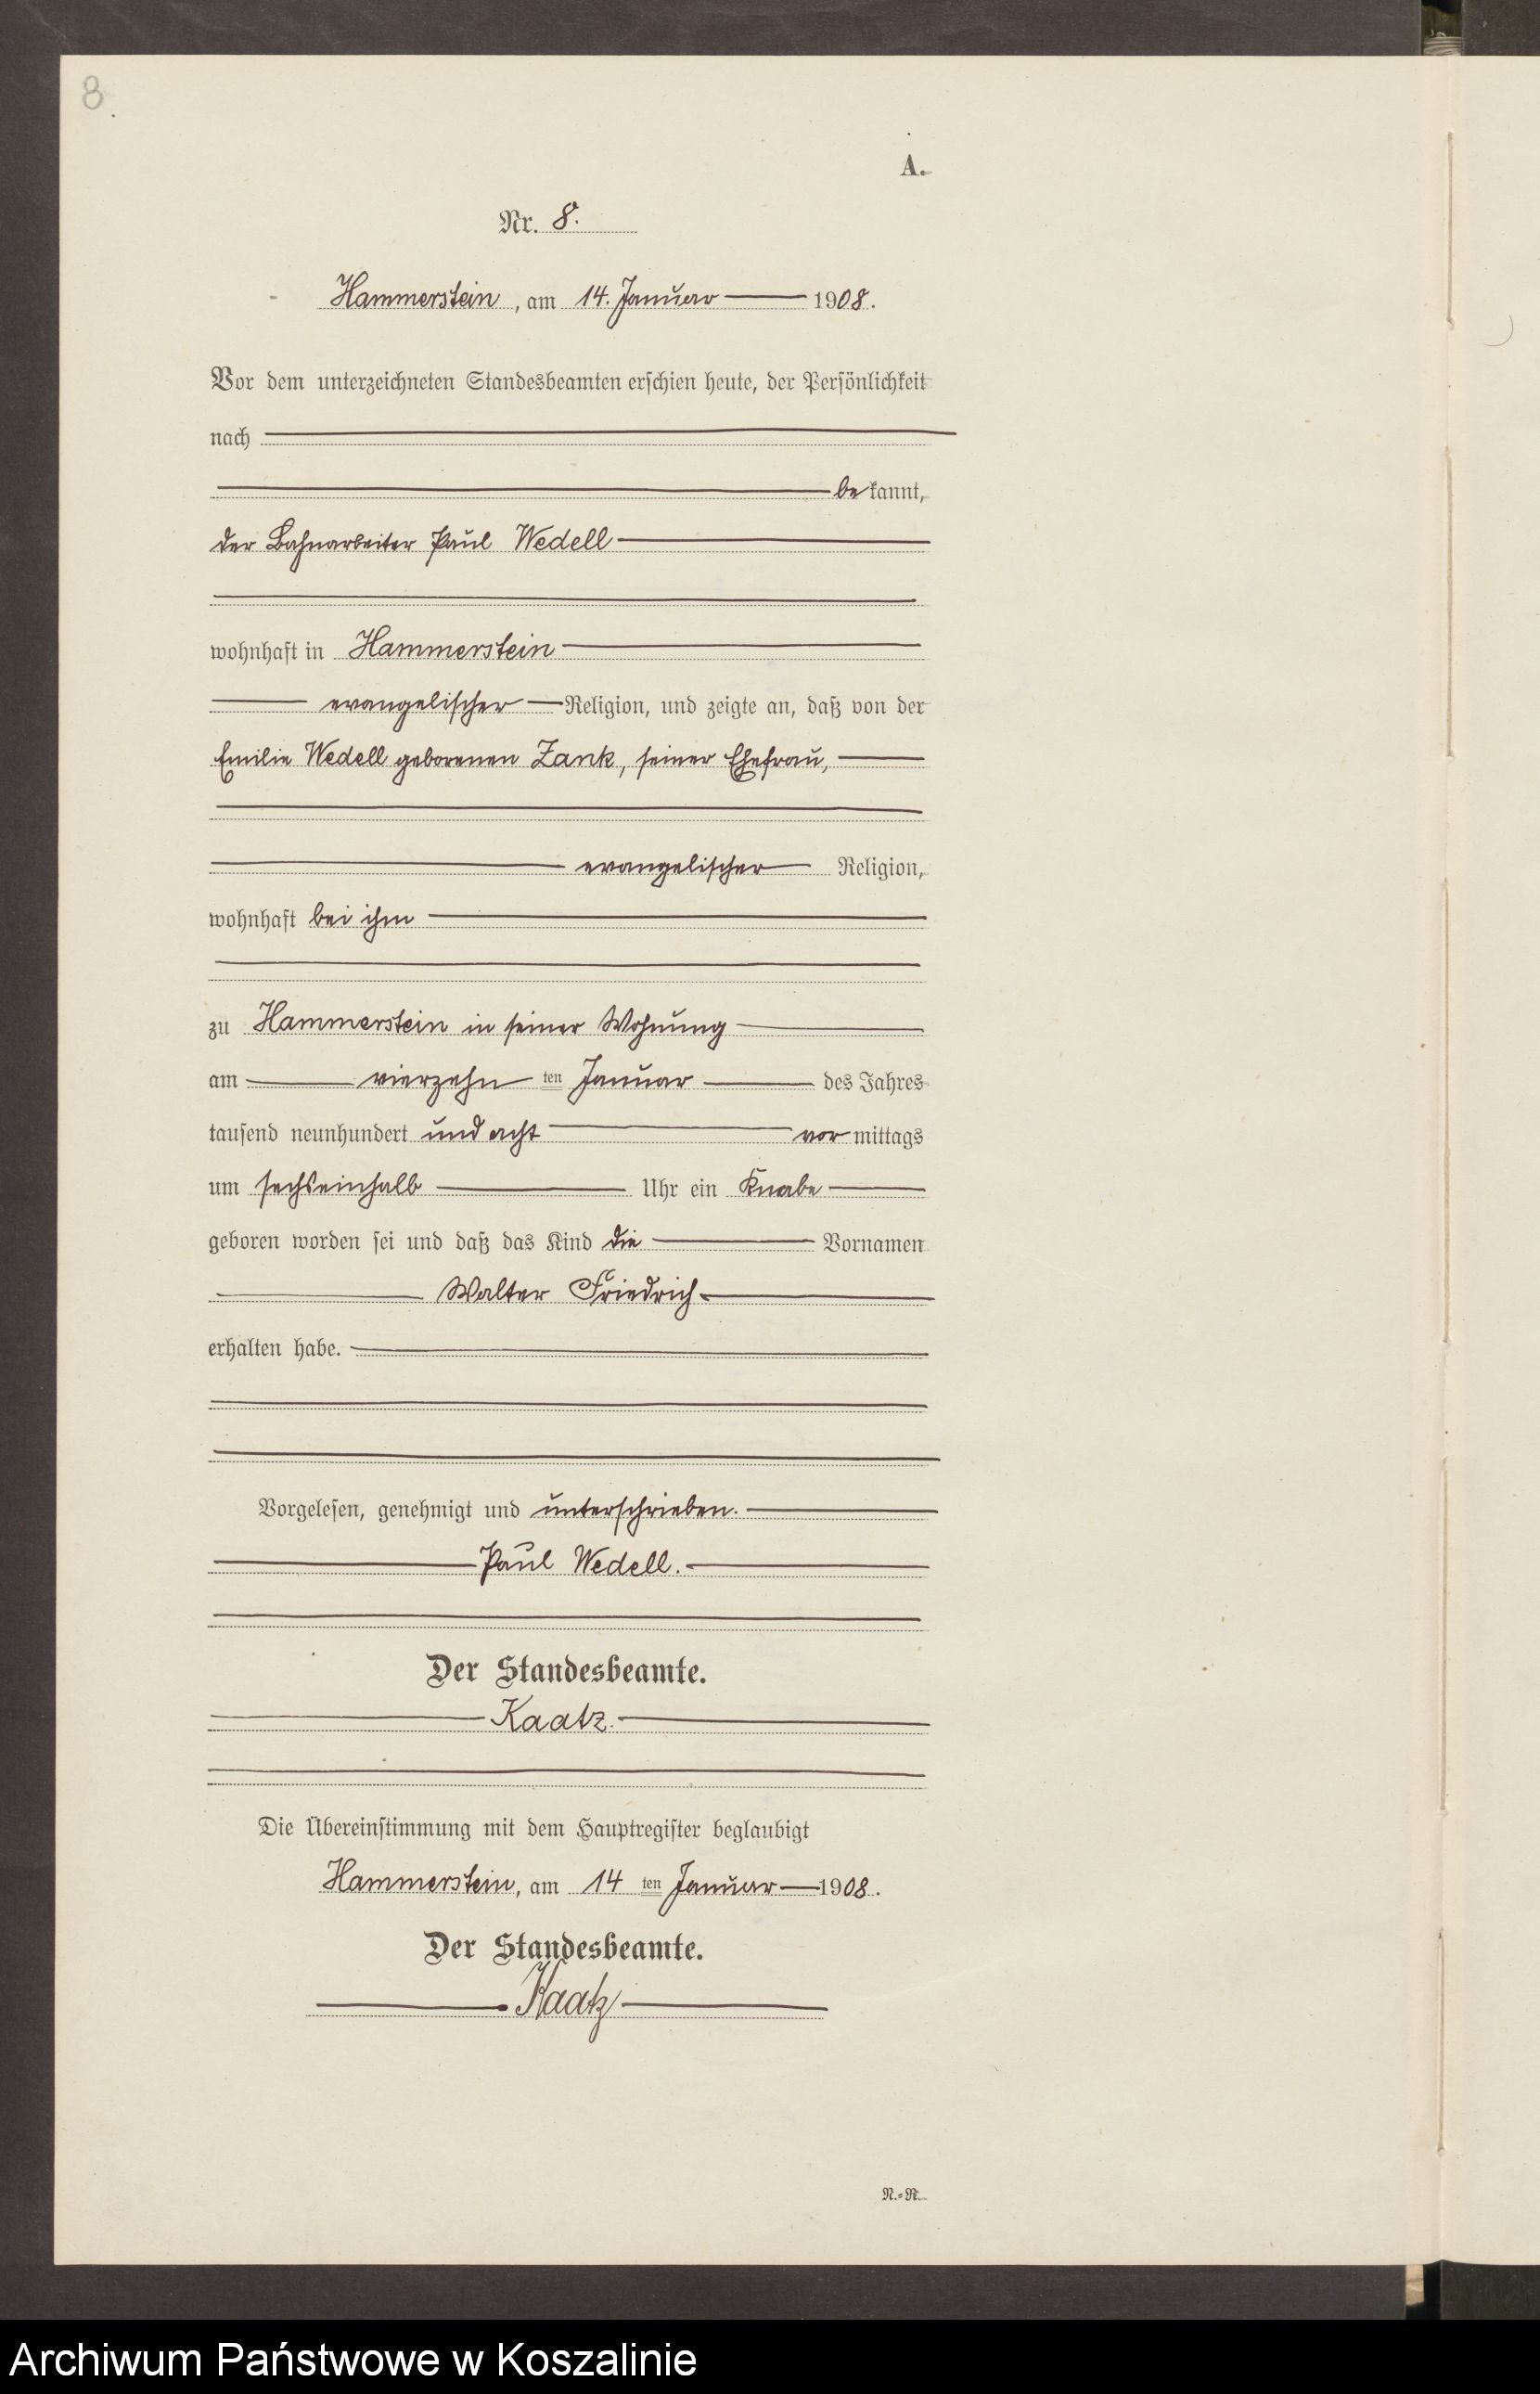 8.
A.
Nr. 8.
Hammerstein, am 14. Januar 1908.
Vor dem unterzeichneten Standesbeamten erschien heute, der Persönlichkeit
nach
bekannt,
der Bahnarbeiter Paul Wedell
wohnhaft in Hammerstein
evangelischer Religion, und zeigte an, daß von der
Emilie Wedell geborenen Zank, seiner Ehefrau,
evangelischer Religion,
wohnhaft bei ihm
zu Hammerstein in seiner Wohnung
am vierzehn ten Januar des Jahres
tausend neunhundert und acht vor mittags
um sechseinhalb Uhr ein Knabe
geboren worden sei und daß das Kind die Vornamen
Walter Friedrich
erhalten habe.
Vorgelesen, genehmigt und unterschrieben.
Paul Wedell.
Der Standesbeamte.
Kaatz.
Die Übereinstimmung mit dem Hauptregister beglaubigt
Hammerstein, am 14 ten Januar 1908.
Der Standesbeamte.
Kaatz
N.-R.
Archiwum Państwowe w Koszalinie